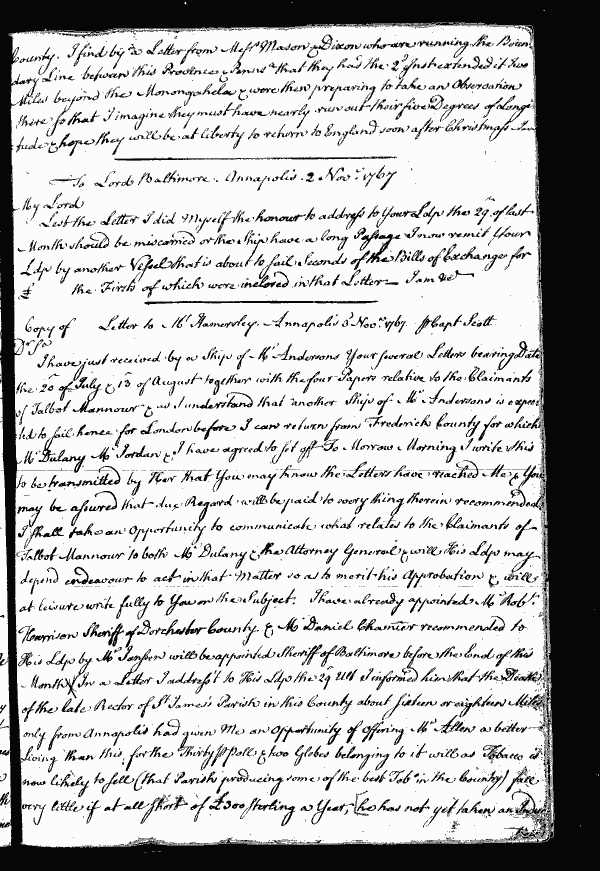 County. I find by a Letter from Messrs Mason & Dixon who are running the Boun
dary Line between this Province & Pensa that they had the 2d Inst extended it two
Miles beyond the Monongahela & were then preparing to take an Observation
there so that I imagine they must have nearly run out their five Degrees of Longi
tude & hope they will be at liberty to return to England soon after Christmass I am
To Lord Baltimore. Annapolis. 2 Novr. 1767
My Lord
Lest the Letter I did Myself the honour to address to Your Ldp the 29th of last
Month should be miscarried or the Ship have a long Passage I now remit Your
Ldp by another Vessel that is about to sail Seconds of the Bills of Exchange for
£ the Firsts of which were inclosed in that Letter I am &c
Copy of Letter to Mr Hamersley. Annapolis 3d Novr. 1767. Capt Scott
Dr Sr
I have just received by a Ship of Mr Andersons Your several Letters bearing Date
the 20 of July & 13 of August together with the four Papers relative to the Claimants
of Talbot Mannour & as I understand that another Ship of Mr Andersons is expec
ted to sail hence for London before I can return from Frederick County for which
Mr Dulany Mr Jordan & I have agreed to set off To Morrow Morning I write this
to be transmitted by Her that You may know the Letters have reached Me & You
may be assured that due Regard will be paid to every thing therein recommended
I shall take an Opportunity to communicate what relates to the Claimants of
Talbot Mannour to both Mr Dulany & the Attorney General & will His Ldp may
depend endeavour to act in that Matter so as to merit his Approbation & will
at leisure write fully to You on the Subject. I have already appointed Mr Robt.
Harrison Sheriff of Dorchester County. & Mr Daniel Chamier recommended to
His Ldp by Mr Janssen will be appointed Sheriff of Baltimore before the End of this
Month In a Letter I addresst to His Ldp the 29 Ult I informed him that the Death
of the late Rector of St James's Parish in this County about sixteen or eighteen Miles
only from Annapolis had given Me an Opportunity of Offering Mr Allen a better
Living than this, for the Thirty Poll & two Glebes belonging to it will as Tobacco is
now likely to sell (that Parish producing some of the best Tobo in the Country) fall
very little if at all short of £300 Sterling a Year, he has not yet taken an Indu